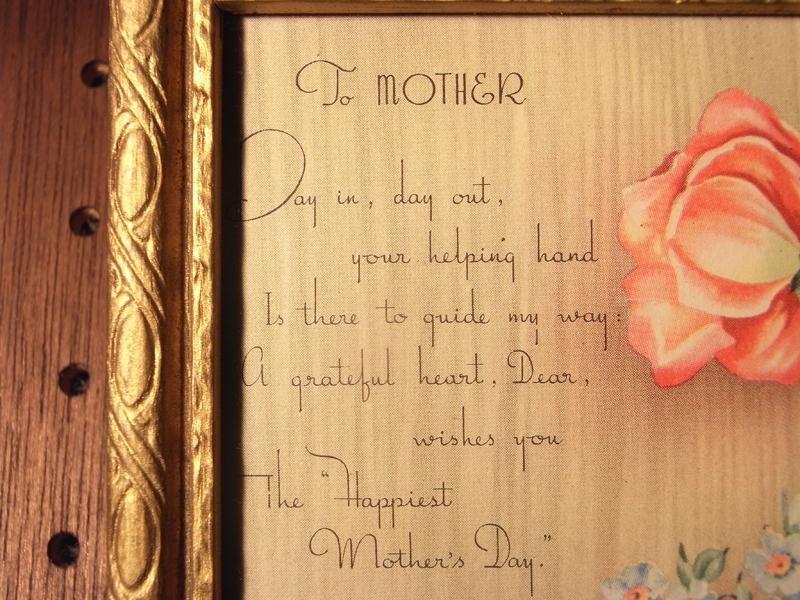 To MOTHER
Day in, day out,
your helping hand
Is there to guide my way:
A grateful heart, Dear,
wishes you
The "Happiest
Mother's Day."